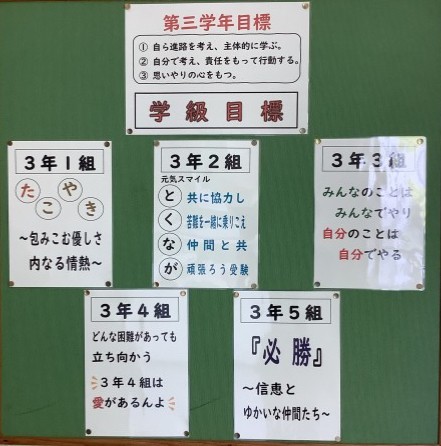 第三学年目標
① 自ら進路を考え、主体的に学ぶ。
② 自分で考え、責任をもって行動する。
③ 思いやりの心をもつ。
学級目標
３年１組
たこやき
～包みこむ優しさ
内なる情熱～
３年２組
元気スマイル
と 共に協力し
く 苦難を一緒に乗りこえ
な 仲間と共
が 頑張ろう受験
３年３組
みんなのことは
みんなでやり
自分のことは
自分でやる
３年４組
どんな困難があっても
立ち向かう
３年４組は
愛があるんよ
３年５組
『必勝』
～信恵と
ゆかいな仲間たち～